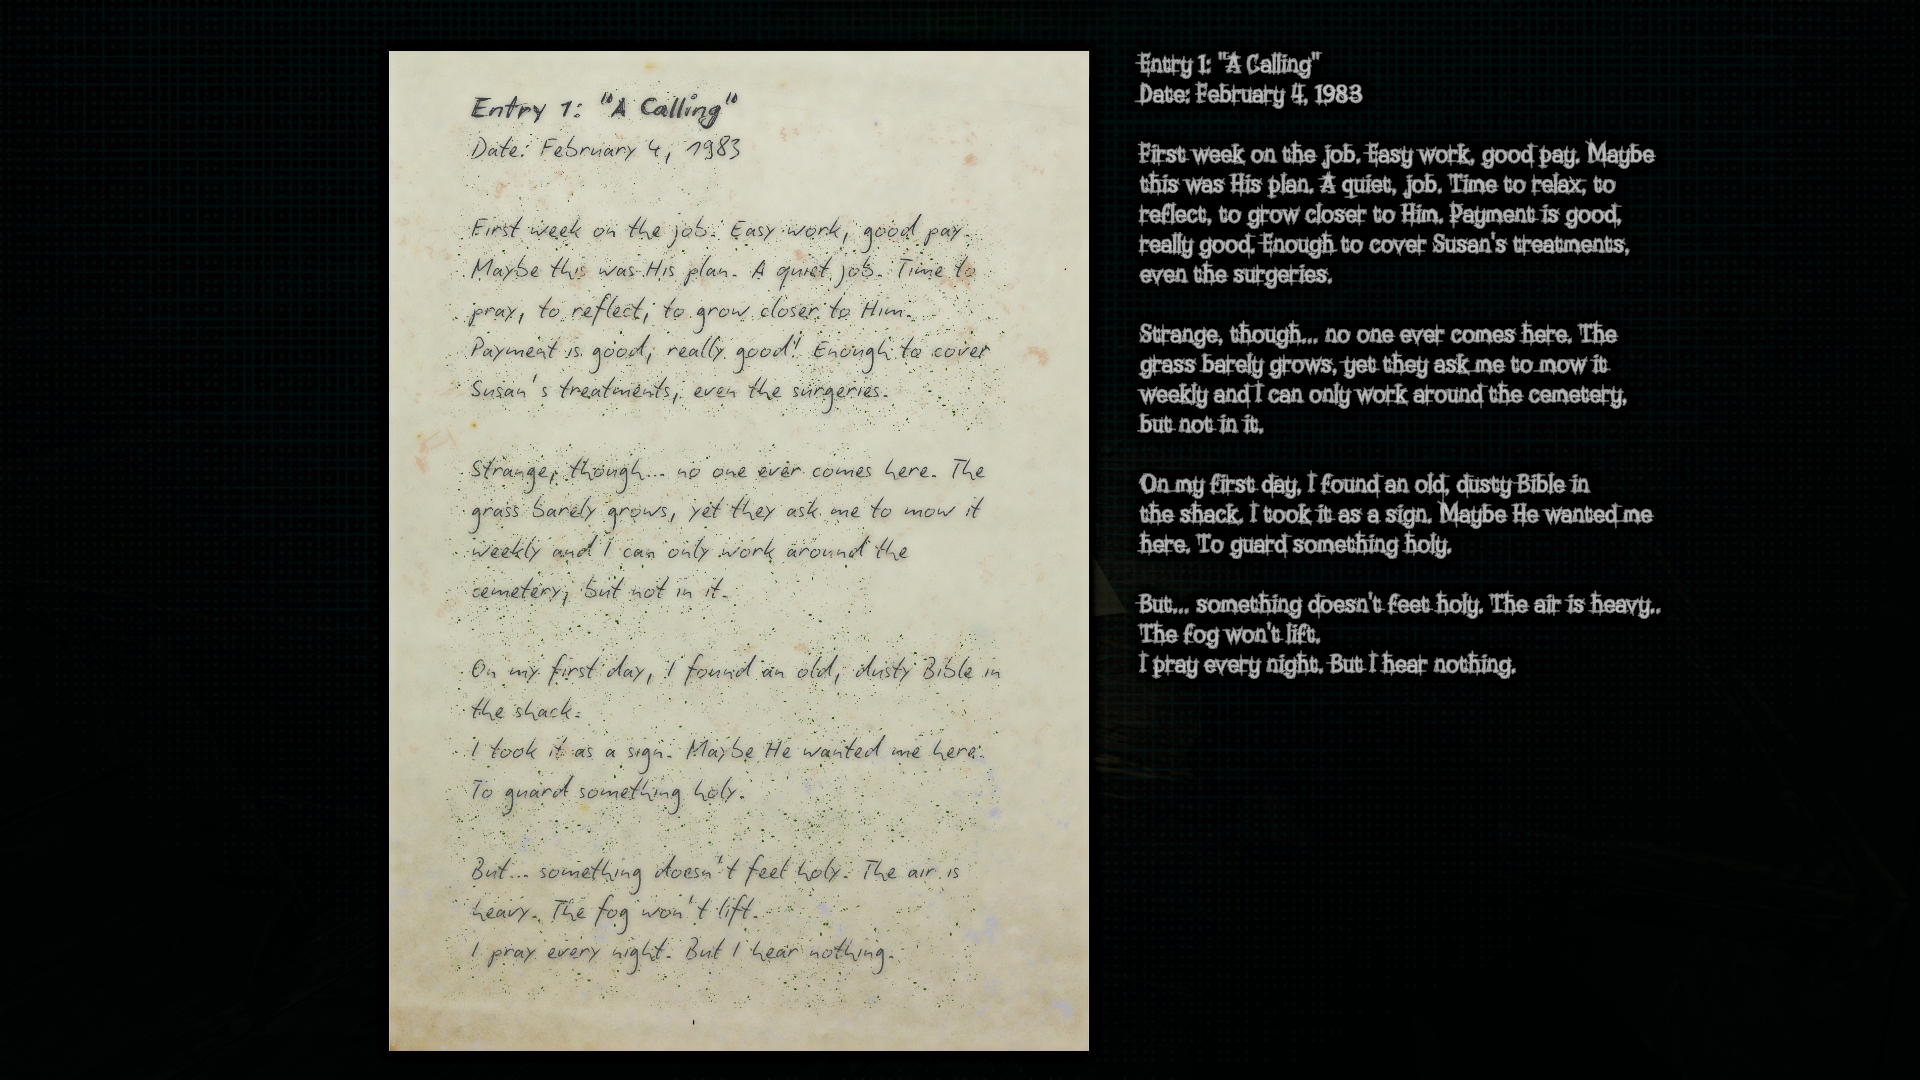 Entry 1: "A Calling"
Date: February 4, 1983
First week on the job. Easy work, good pay.
Maybe this was His plan. A quiet job. Time to
pray, to reflect, to grow closer to Him.
Payment is good, really good! Enough to cover
Susan's treatments, even the surgeries.
Strange, though... no one ever comes here. The
grass barely grows, yet they ask me to mow it
weekly and I can only work around the
cemetery, but not in it.
On my first day, I found an old, dusty Bible in
the shack.
I took it as a sign. Maybe He wanted me here.
To guard something holy.
But... something doesn't feel holy. The air is
heavy. The fog won't lift.
I pray every night. But I hear nothing.
Entry 1: "A Calling"
Date: February 4, 1983
First week on the job. Easy work, good pay. Maybe
this was His plan. A quiet, job. Time to relax, to
reflect, to grow closer to Him. Payment is good,
really good. Enough to cover Susan's treatments,
even the surgeries.
Strange, though... no one ever comes here. The
grass barely grows, yet they ask me to mow it
weekly and I can only work around the cemetery,
but not in it.
On my first day, I found an old, dusty Bible in
the shack. I took it as a sign. Maybe He wanted me
here. To guard something holy.
But... something doesn't feel holy. The air is heavy..
The fog won't lift.
I pray every night. But I hear nothing.